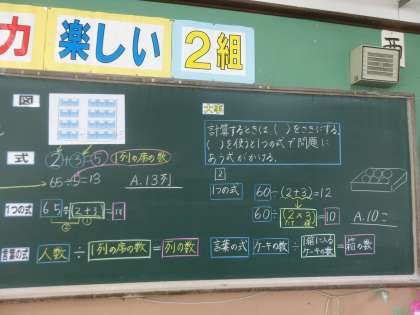 力 楽しい 2組
西
図
式 2+3=5 1列の席の数
65÷5=13 A.13列
1つの式 65÷(2+3)=13
② ①
言葉の式 人数÷1列の席の数=列の数
大事
計算するときは、( )をさきにする。
( )を使うと1つの式で問題に
あう式がかける。
2
1つの式 60÷(2+3)=12
60÷(2×3)=10 A.10こ
言葉の式 ケーキの数÷1箱に入るケーキの数=箱の数